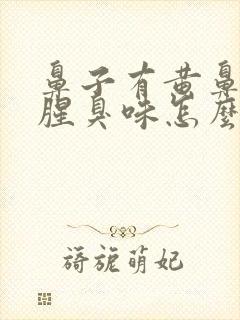 鼻子有黄鼻
腥臭味怎麼
旖旎萌妃